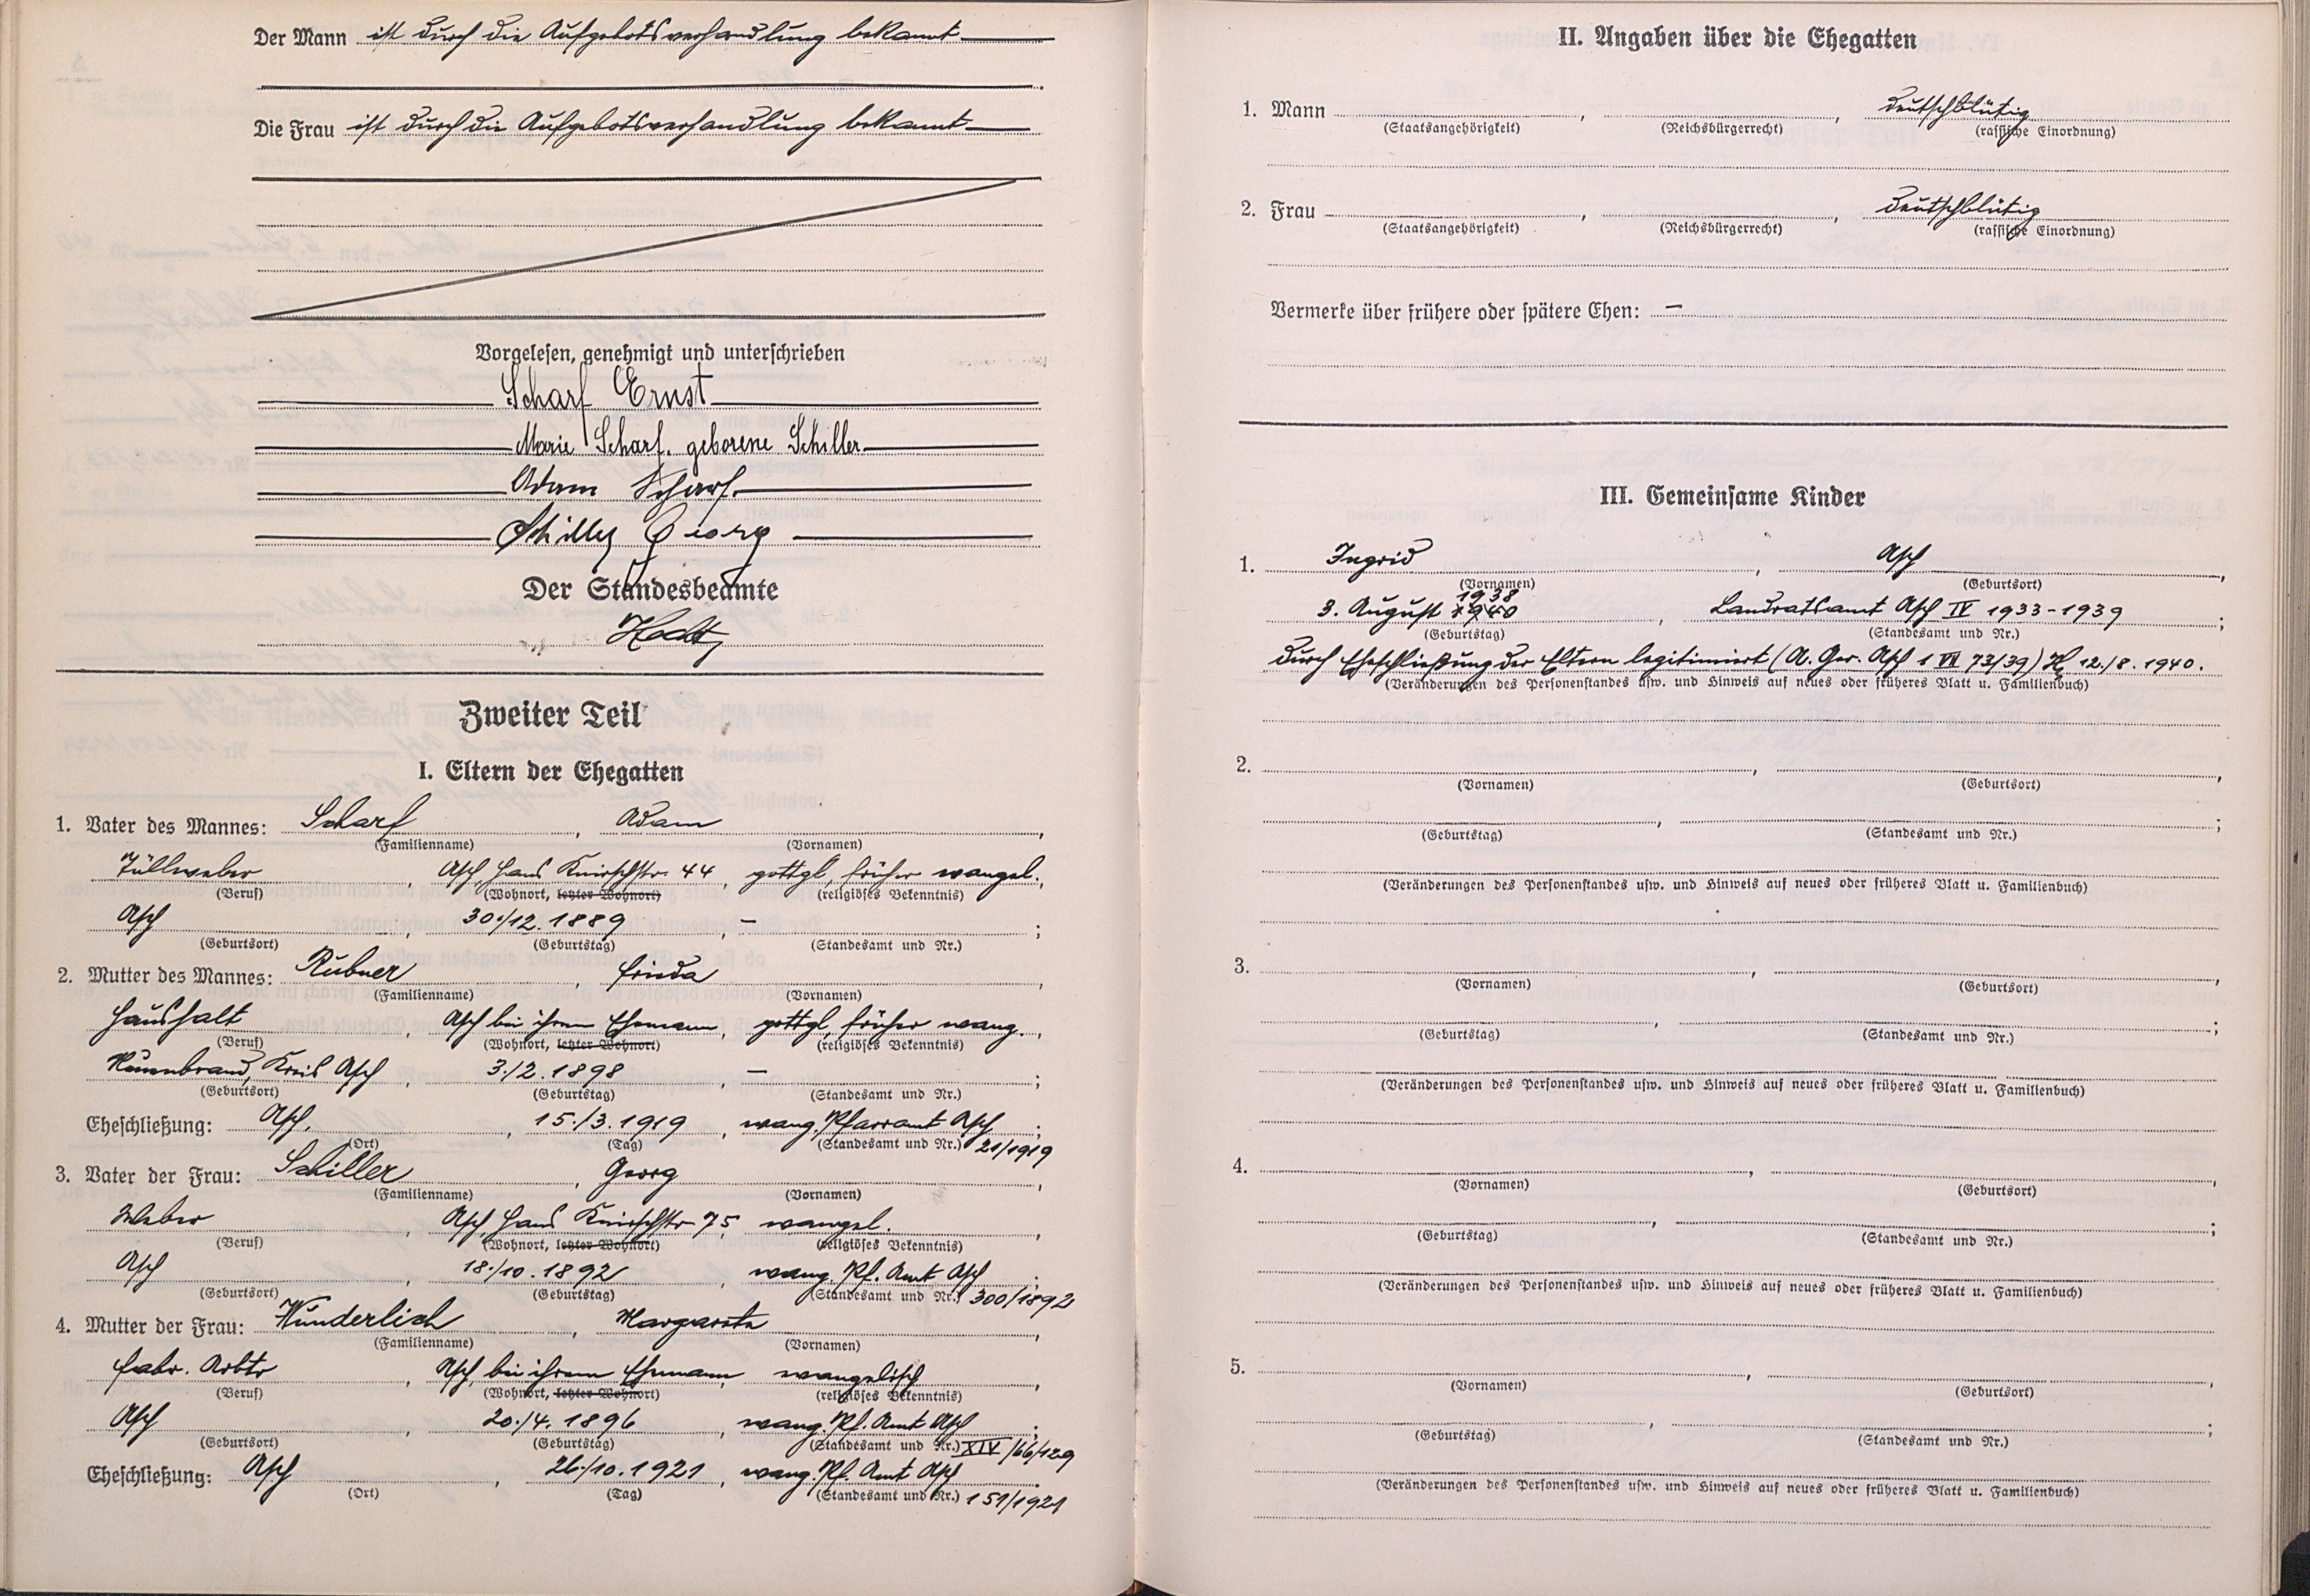 Der Mann ist durch die Aufgebotsverhandlung bekannt
Die Frau ist durch die Aufgebotsverhandlung bekannt
Vorgelesen, genehmigt und unterschrieben
Scharf Ernst
Marie Scharf. geborene Schiller
Adam Scharf.
Schiller Georg
Der Standesbeamte
Zweiter Teil
I. Eltern der Ehegatten
1. Vater des Mannes: Scharf, Adam,
(Familienname) (Vornamen)
Tüllweber, Asch, Hans Knirschstr. 44, gottgl, früher evangel.,
(Beruf) (Wohnort, letzter Wohnort) (religiöses Bekenntnis)
Asch, 30./12.1889, – ;
(Geburtsort) (Geburtstag) (Standesamt und Nr.)
2. Mutter des Mannes: Rubner, Frieda,
(Familienname) (Vornamen)
Haushalt, Asch bei ihrem Ehemann, gottgl, früher evang.,
(Beruf) (Wohnort, letzter Wohnort) (religiöses Bekenntnis)
Neuenbrand, Kreis Asch, 3./2.1898, – ;
(Geburtsort) (Geburtstag) (Standesamt und Nr.)
Eheschließung: Asch, 15./3.1919, evang. Pfarramt Asch ;
(Ort) (Tag) (Standesamt und Nr.) 21/1919
3. Vater der Frau: Schiller, Georg,
(Familienname) (Vornamen)
Weber, Asch, Hans Knirschstr 75, evangel.,
(Beruf) (Wohnort, letzter Wohnort) (religiöses Bekenntnis)
Asch, 18./10.1892, evang. Pf. Amt Asch ;
(Geburtsort) (Geburtstag) (Standesamt und Nr.) 300/1892
4. Mutter der Frau: Wunderlich, Margareta,
(Familienname) (Vornamen)
Fabr. Arbtr, Asch, bei ihrem Ehemann, evangelisch,
(Beruf) (Wohnort, letzter Wohnort) (religiöses Bekenntnis)
Asch, 20./4.1896, evang. Pf. Amt Asch ;
(Geburtsort) (Geburtstag) (Standesamt und Nr.) XIV/66/129
Eheschließung: Asch, 26./10.1921, evang. Pf. Amt Asch.
(Ort) (Tag) (Standesamt und Nr.) 151/1921
II. Angaben über die Ehegatten
1. Mann , , deutschblütig
(Staatsangehörigkeit) (Reichsbürgerrecht) (rassische Einordnung)
2. Frau , , deutschblütig
(Staatsangehörigkeit) (Reichsbürgerrecht) (rassische Einordnung)
Vermerke über frühere oder spätere Ehen: –
III. Gemeinsame Kinder
1. Ingrid, Asch,
(Vornamen) (Geburtsort)
1938
3. August 1940, Landratsamt Asch IV 1933-1939 ;
(Geburtstag) (Standesamt und Nr.)
durch Eheschließung der Eltern legitimiert (A. Ger. Asch 1 VII 73/39) 12./8.1940.
(Veränderungen des Personenstandes usw. und Hinweis auf neues oder früheres Blatt u. Familienbuch)
2. , ,
(Vornamen) (Geburtsort)
, ;
(Geburtstag) (Standesamt und Nr.)
(Veränderungen des Personenstandes usw. und Hinweis auf neues oder früheres Blatt u. Familienbuch)
3. , ,
(Vornamen) (Geburtsort)
, ;
(Geburtstag) (Standesamt und Nr.)
(Veränderungen des Personenstandes usw. und Hinweis auf neues oder früheres Blatt u. Familienbuch)
4. , ,
(Vornamen) (Geburtsort)
, ;
(Geburtstag) (Standesamt und Nr.)
(Veränderungen des Personenstandes usw. und Hinweis auf neues oder früheres Blatt u. Familienbuch)
5. , ,
(Vornamen) (Geburtsort)
, ;
(Geburtstag) (Standesamt und Nr.)
(Veränderungen des Personenstandes usw. und Hinweis auf neues oder früheres Blatt u. Familienbuch)